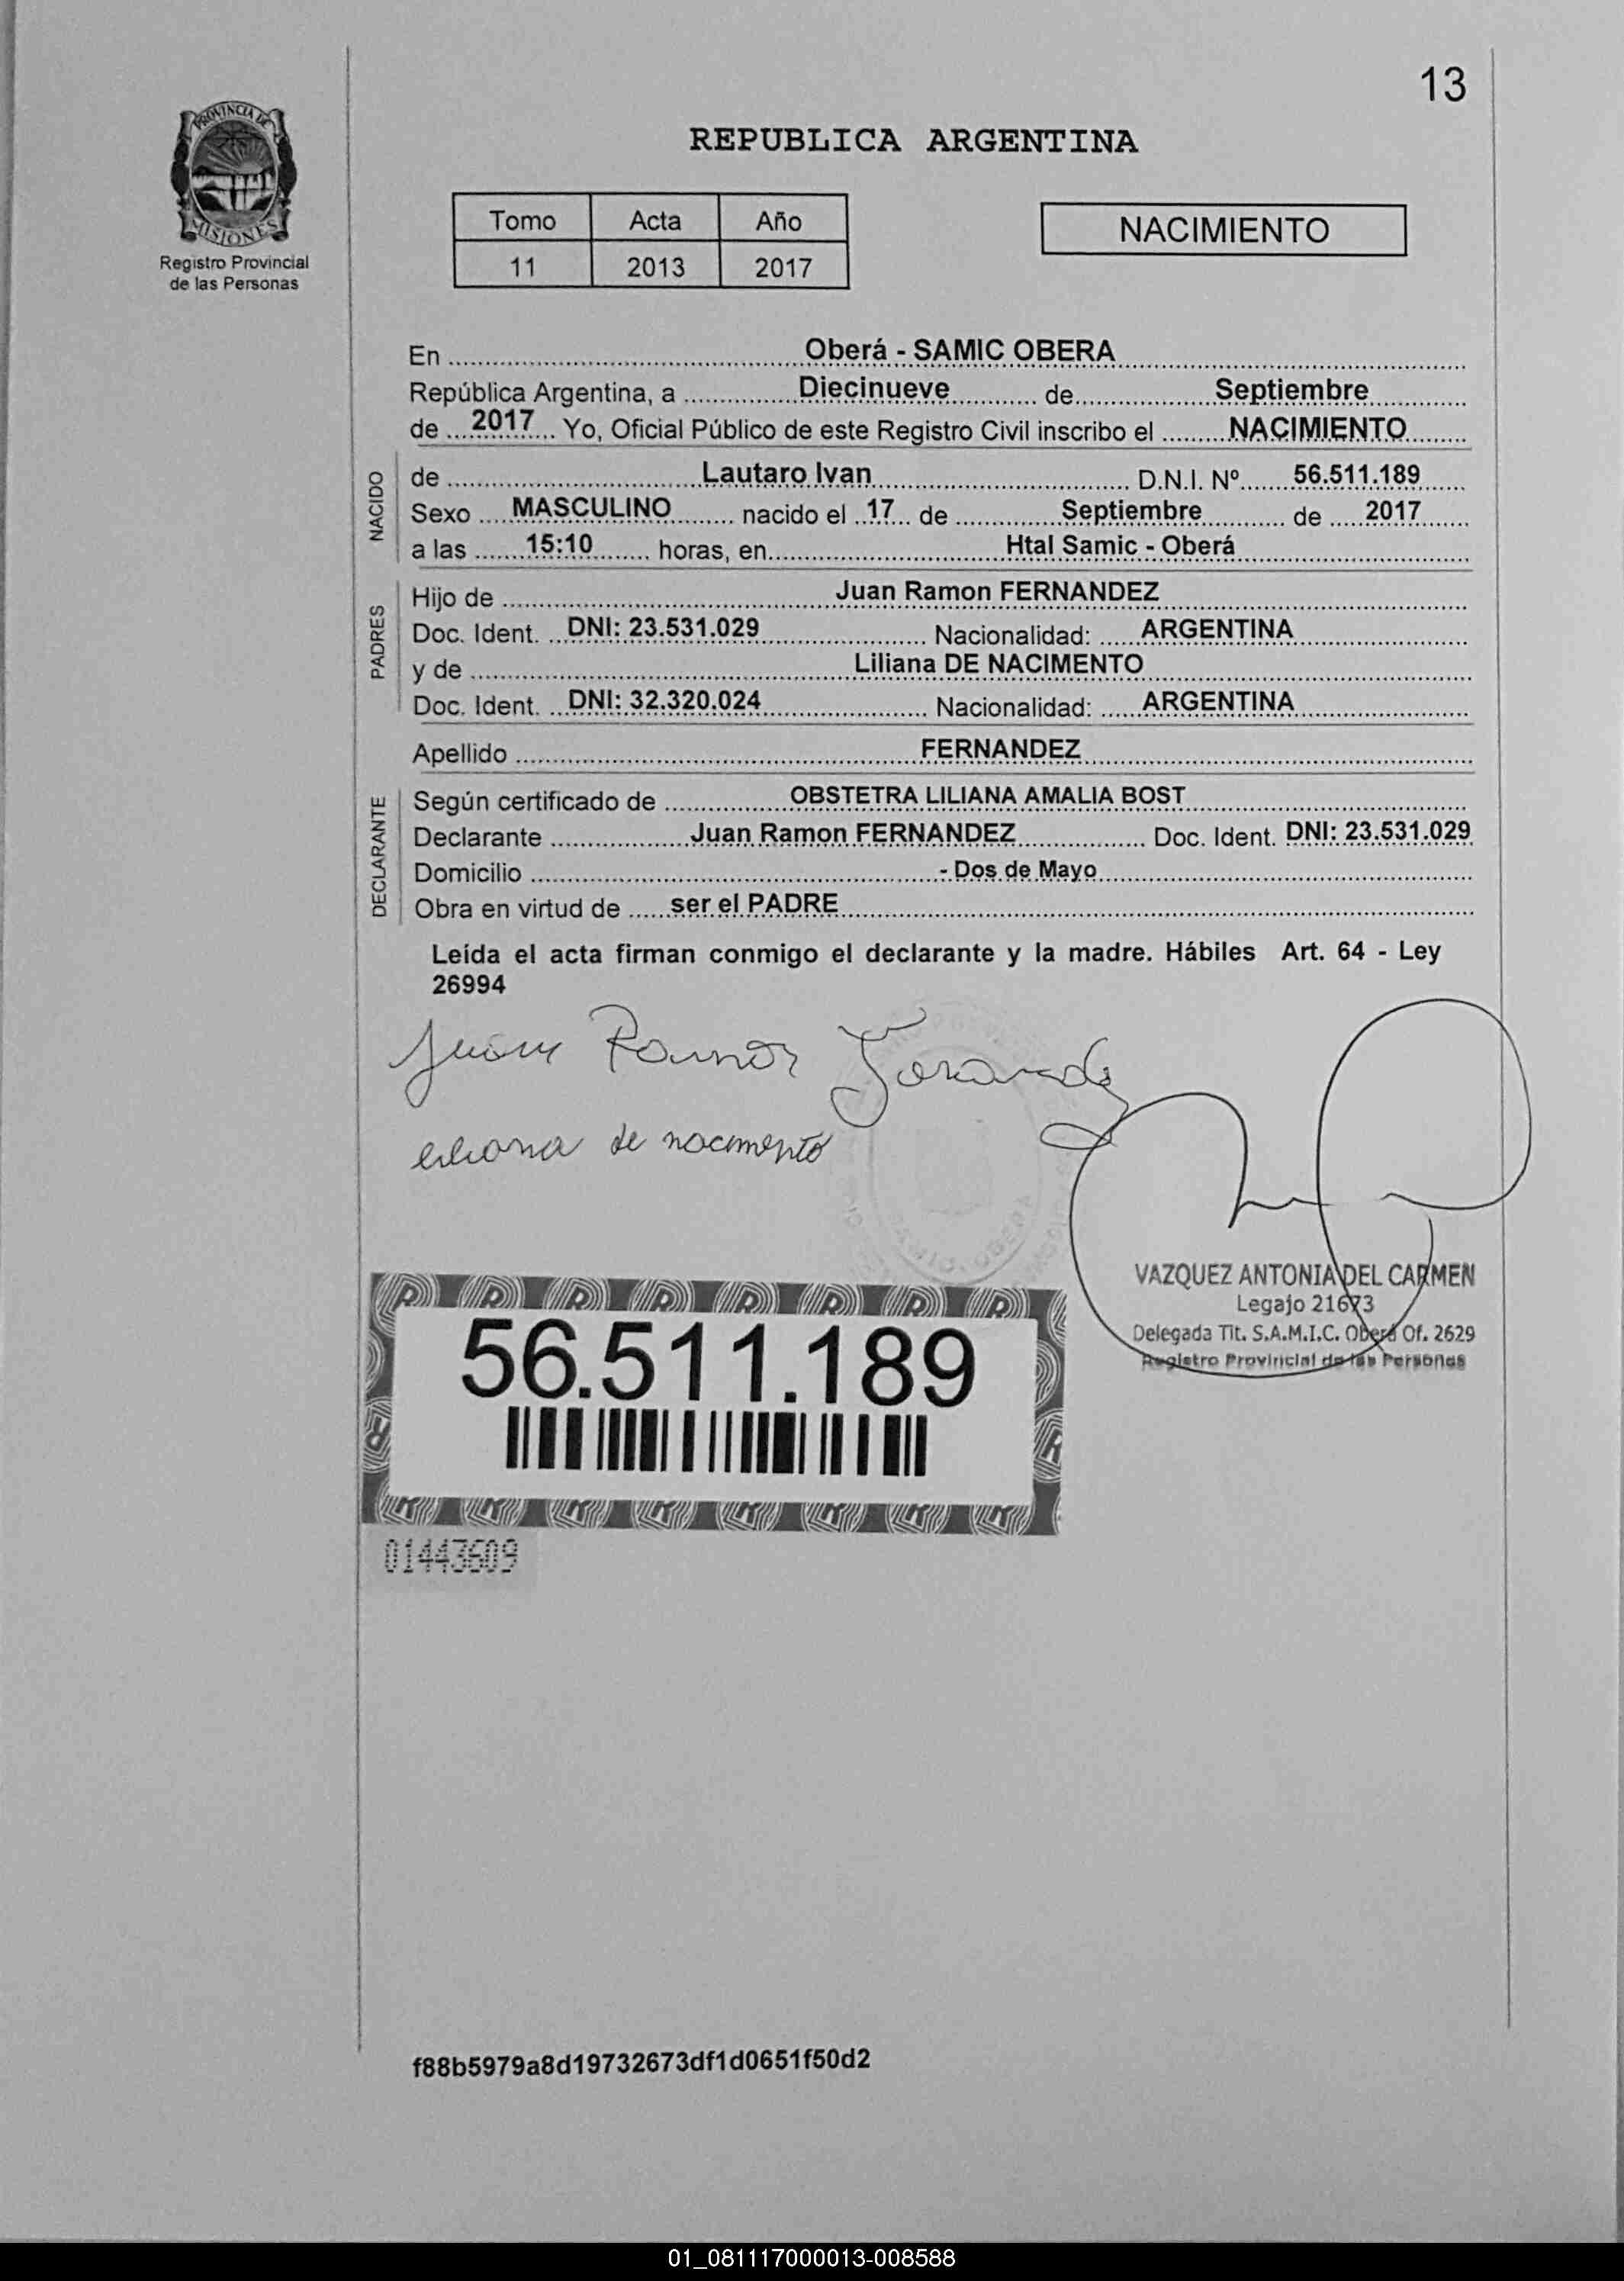 13
PROVINCIA DE
MISIONES
Registro Provincial
de las Personas
REPUBLICA ARGENTINA
Tomo Acta Año
11 2013 2017
NACIMIENTO
En Oberá - SAMIC OBERA
República Argentina, a Diecinueve de Septiembre
de 2017 Yo, Oficial Público de este Registro Civil inscribo el NACIMIENTO
NACIDO
de Lautaro Ivan D.N.I. Nº 56.511.189
Sexo MASCULINO nacido el 17 de Septiembre de 2017
a las 15:10 horas, en Htal Samic - Oberá
PADRES
Hijo de Juan Ramon FERNANDEZ
Doc. Ident. DNI: 23.531.029 Nacionalidad: ARGENTINA
y de Liliana DE NACIMENTO
Doc. Ident. DNI: 32.320.024 Nacionalidad: ARGENTINA
Apellido FERNANDEZ
DECLARANTE
Según certificado de OBSTETRA LILIANA AMALIA BOST
Declarante Juan Ramon FERNANDEZ Doc. Ident. DNI: 23.531.029
Domicilio - Dos de Mayo
Obra en virtud de ser el PADRE
Leída el acta firman conmigo el declarante y la madre. Hábiles Art. 64 - Ley
26994
Juan Ramon
liliana de nacimento
VAZQUEZ ANTONIA DEL CARMEN
Legajo 21673
Delegada Tit. S.A.M.I.C. Oberá Of. 2629
Registro Provincial de las Personas
56.511.189
01443609
f88b5979a8d19732673df1d0651f50d2
01_081117000013-008588